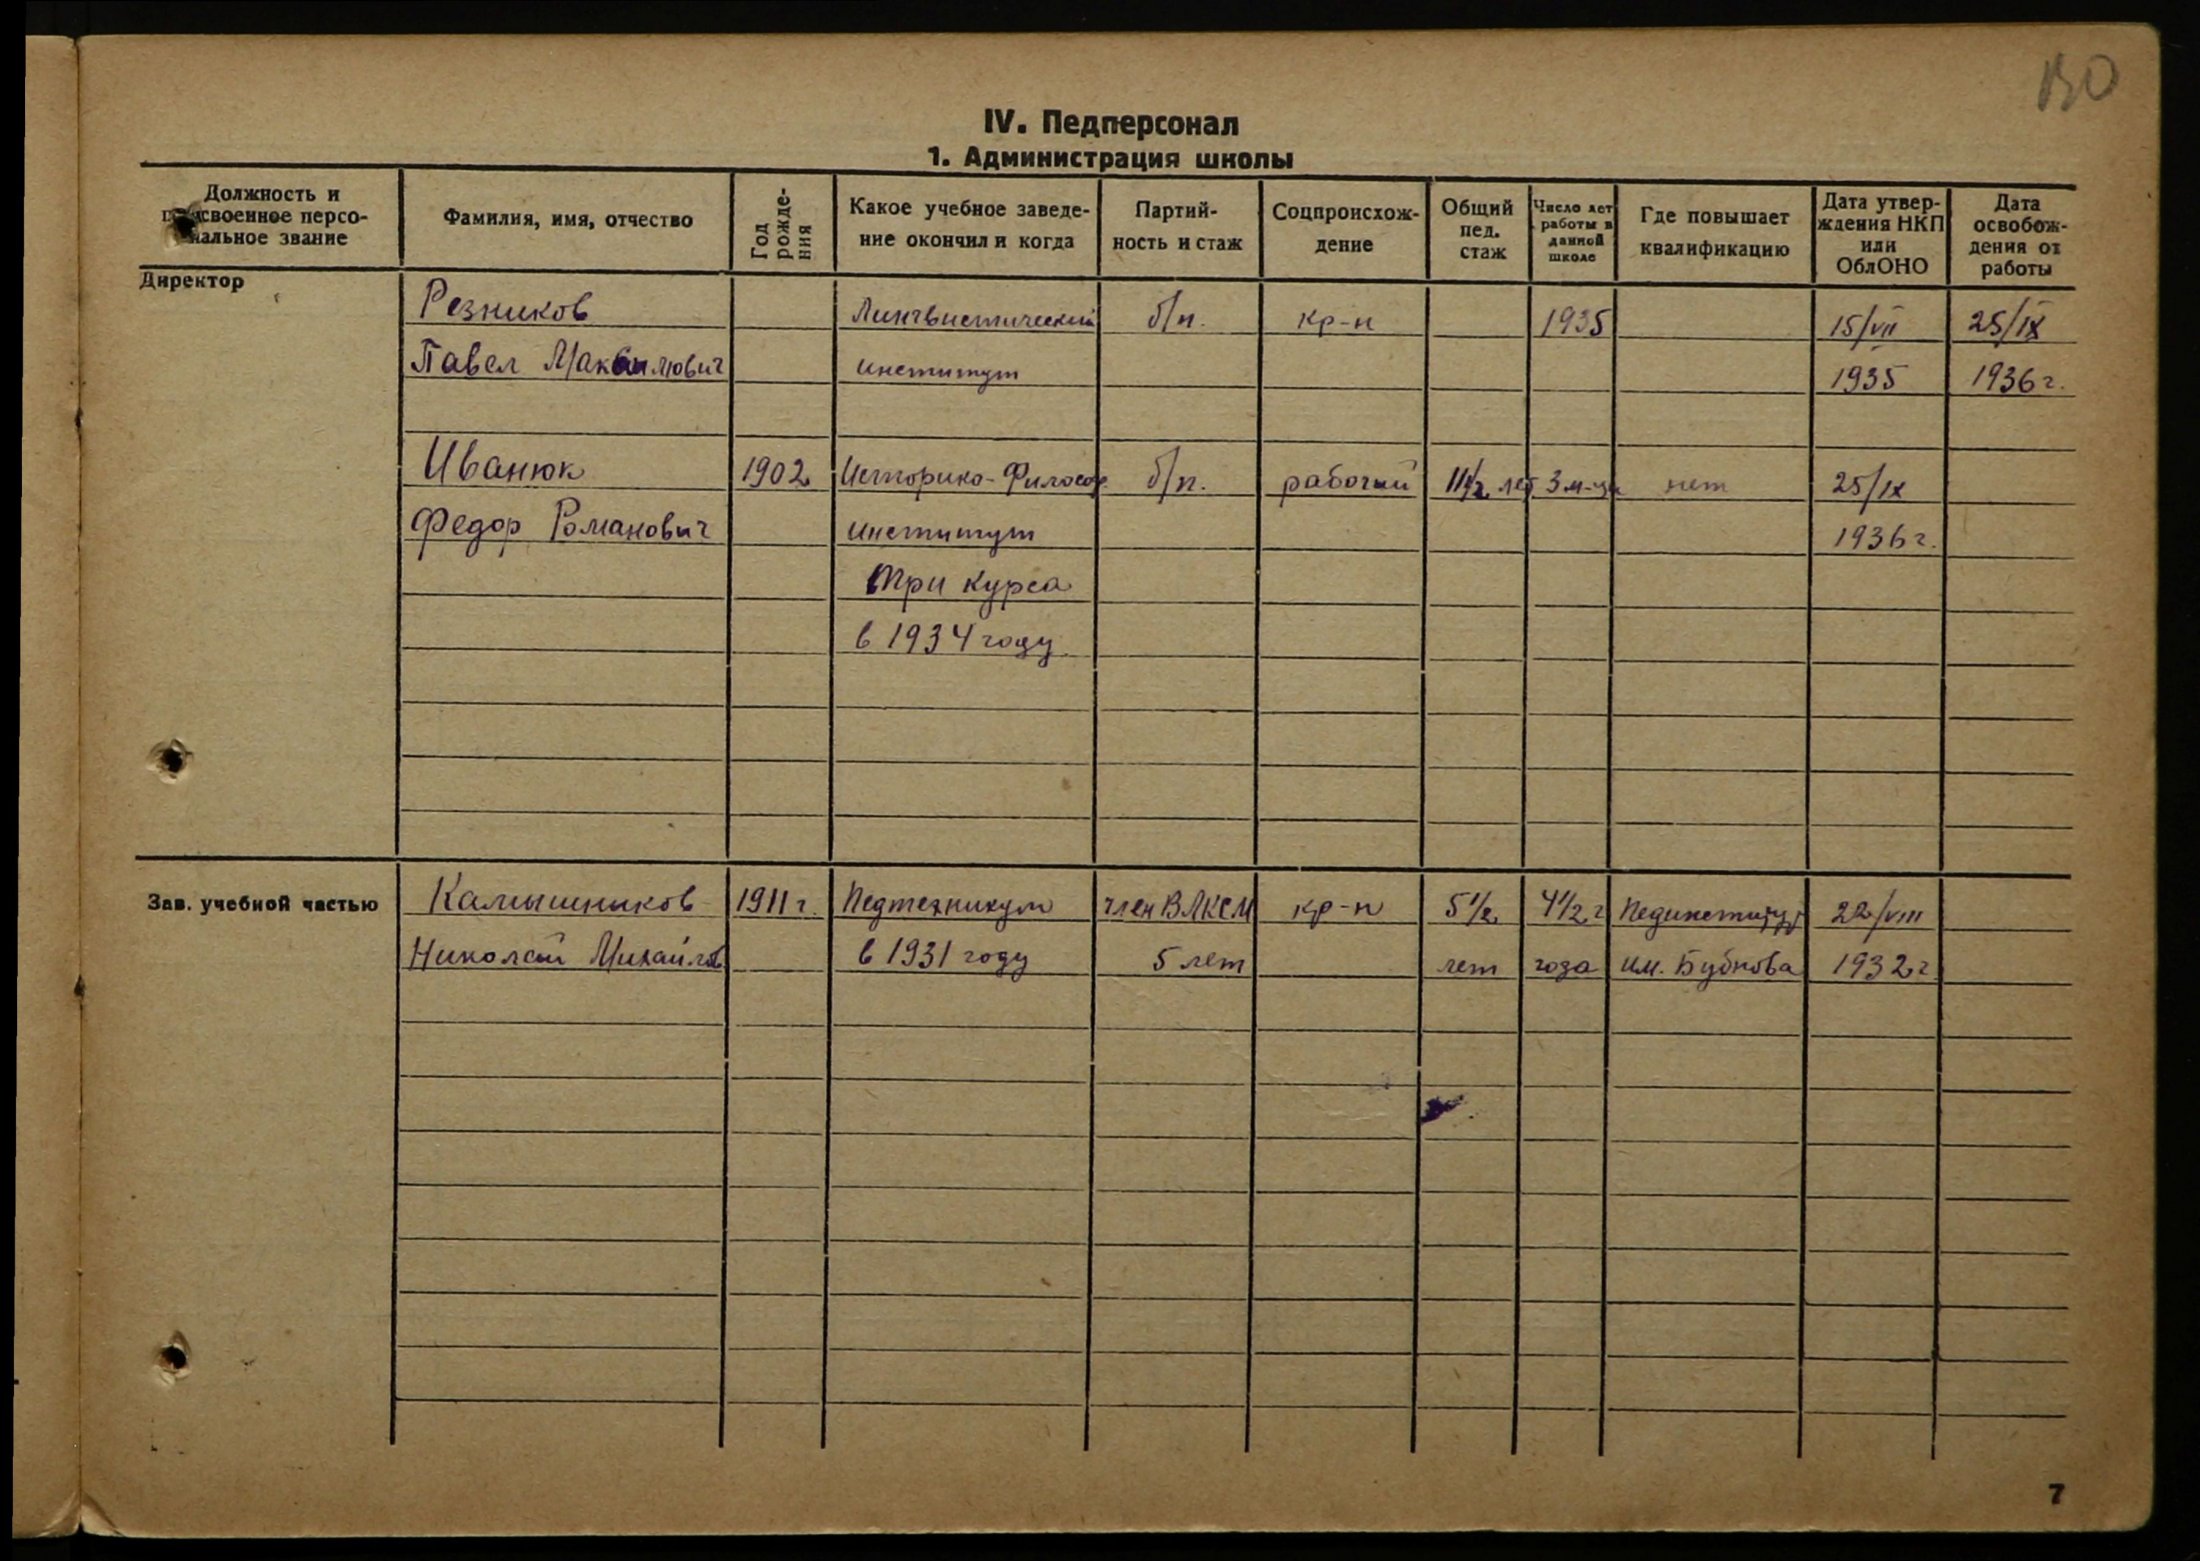 130
IV. Педперсонал
1. Администрация школы
Должность и присвоенное персональное звание | Фамилия, имя, отчество | Год рождения | Какое учебное заведение окончил и когда | Партийность и стаж | Соцпроисхождение | Общий пед. стаж | Число лет работы в данной школе | Где повышает квалификацию | Дата утверждения НКП или ОблОНО | Дата освобождения от работы
Директор
Резников | Лингвистический | б/п. | кр-н | 1935 | 15/VII | 25/IX
Павел | институт | 1935 | 1936 г.
Иванюк | 1902 | Историко-Философ | б/п. | рабочий | 11 1/2 лет | 3 м-ца | нет | 25/IX
Федор Романович | институт | 1936 г.
три курса
в 1934 году
Зав. учебной частью | Камышников | 1911 г. | Педтехникум | член ВЛКСМ | кр-н | 5 1/2 | 4 1/2 г | Пединститут | 22/VIII
Николай Михайлов | в 1931 году | 5 лет | лет | года | им. Бубнова | 1932 г.
7